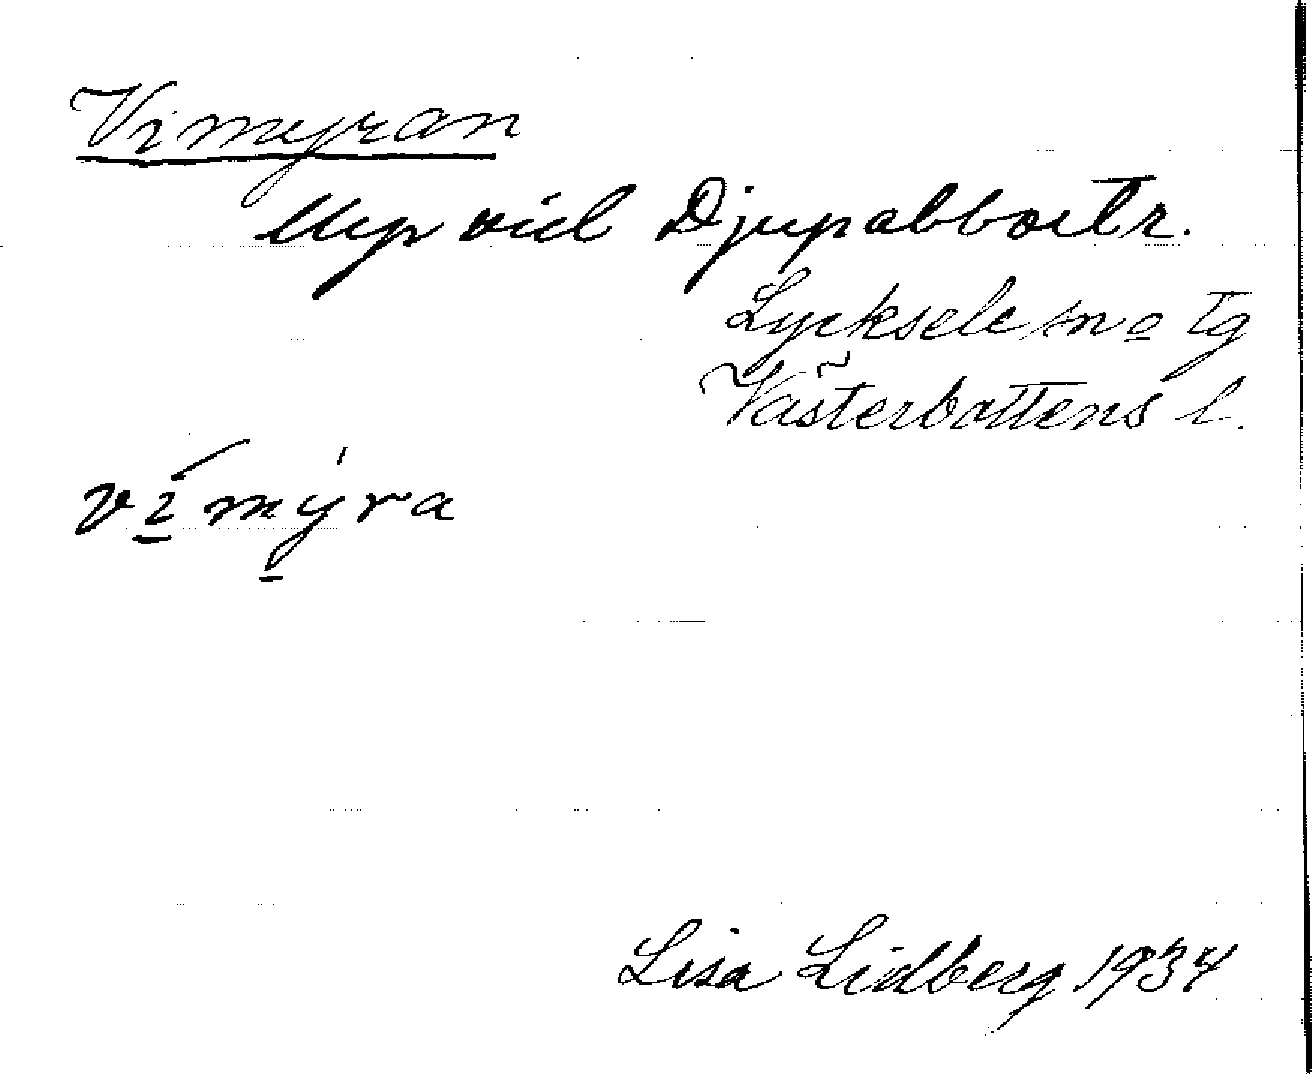 Vimyran
Myr vid Djupabbortr.
Lycksele sn o tg
Västerbottens l.
vi̱mý̱ra
Lisa Lidberg 1934